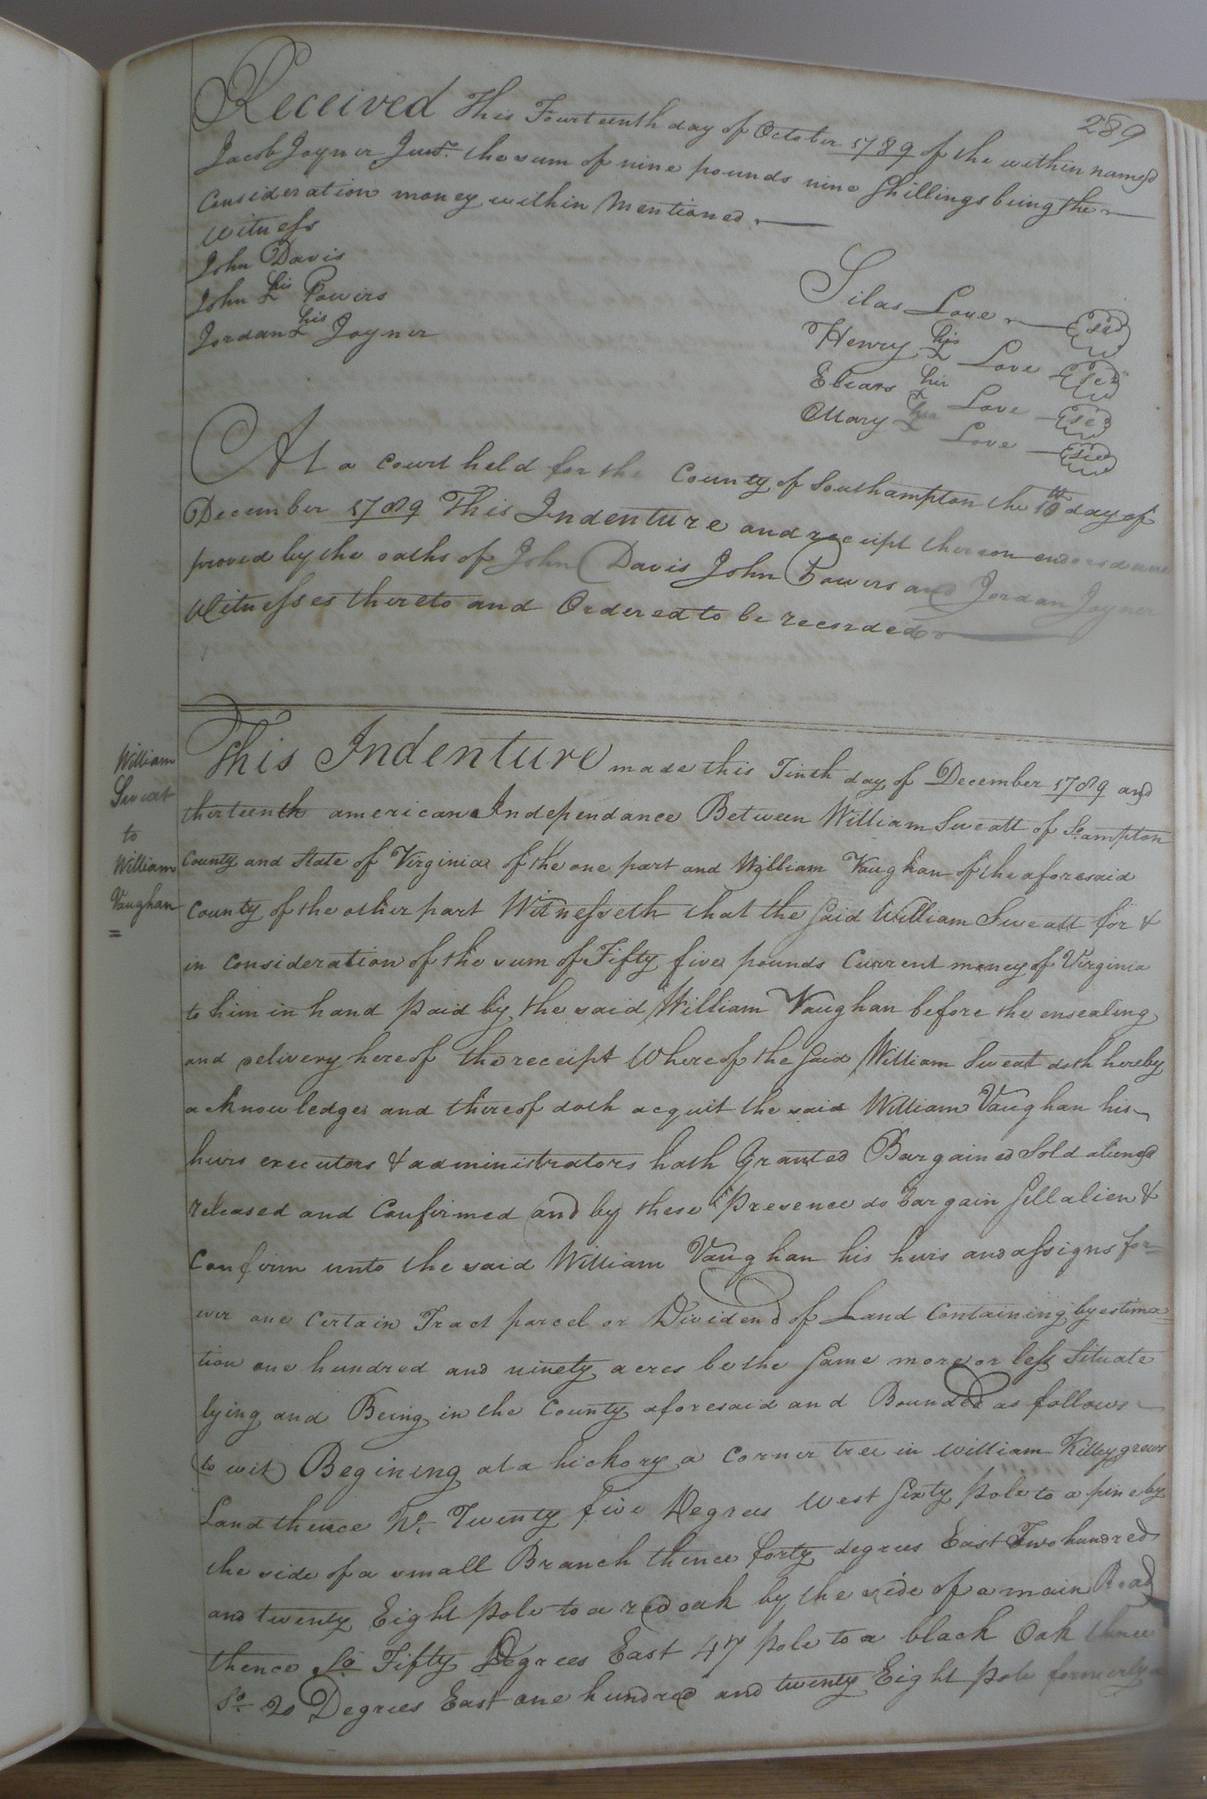 289
Received This Fourteenth day of October 1789 of the within named
Jacob Joyner Junr. the sum of nine pounds nine shillings being the
Consideration money within Mentioned.
Witness
John Davis
John his x Powers
Jordan his x Joyner
Silas Love
Henry his x Love
Mary her x Love
At a Court held for the County of Southampton the 10th day of
December 1789 This Indenture and receipt thereon endorsed were
proved by the oaths of John Davis John Powers and Jordan Joyner
Witnesses thereto and Ordered to be recorded
William
Sweat
to
William
Vaughan
This Indenture made this Tinth day of December 1789 and
thirteenth american Independance Between William Sweatt of So.ampton
County and State of Virginia of the one part and William Vaughan of the aforesaid
County of the other part Witnesseth that the Said William Sweatt for &
in Consideration of the sum of Fifty five pounds Current money of Virginia
to him in hand paid by the said William Vaughan before the ensealing
and delivery hereof the receipt Whereof the Said William Sweat doth hereby
acknowledge and thereof doth acquit the said William Vaughan his
heirs executors & administrators hath Granted Bargained Sold aliened
released and Confirmed and by these Presence do bargain Sell alien &
Confirm unto the said William Vaughan his heirs and assigns for=
ever one Certain Tract parcel or Dividend of Land Containing by estima=
tion one hundred and ninety acres be the Same more or less Situate
lying and Being in the County aforesaid and Bounded as follows
(to wit) Begining at a hickory a corner tree in William Killygrews
Land thence No. Twenty five Degrees West Sixty pole to a pine by
the side of a small Branch thence forty degrees East Two hundred
and twenty Eight pole to a red oak by the side of a main Road
thence So Fifty Degrees East 47 pole to a black Oak thence
So. 20 Degrees East one hundred and twenty Eight pole formerly a